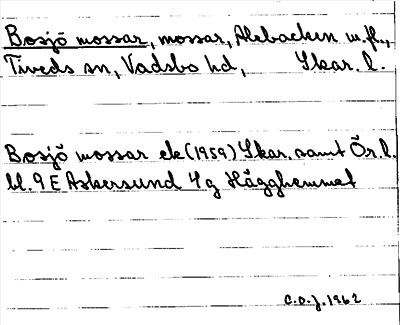 Bosjö mossar, mossar, Alebacken m.fl.,
Tiveds sn, Vadsbo hd, Skar. l.
Bosjö mossar ek (1959) Skar. samt Ör. l.
bl. 9 E Askersund 4 g Hägghemmet
C.O.J. 1962